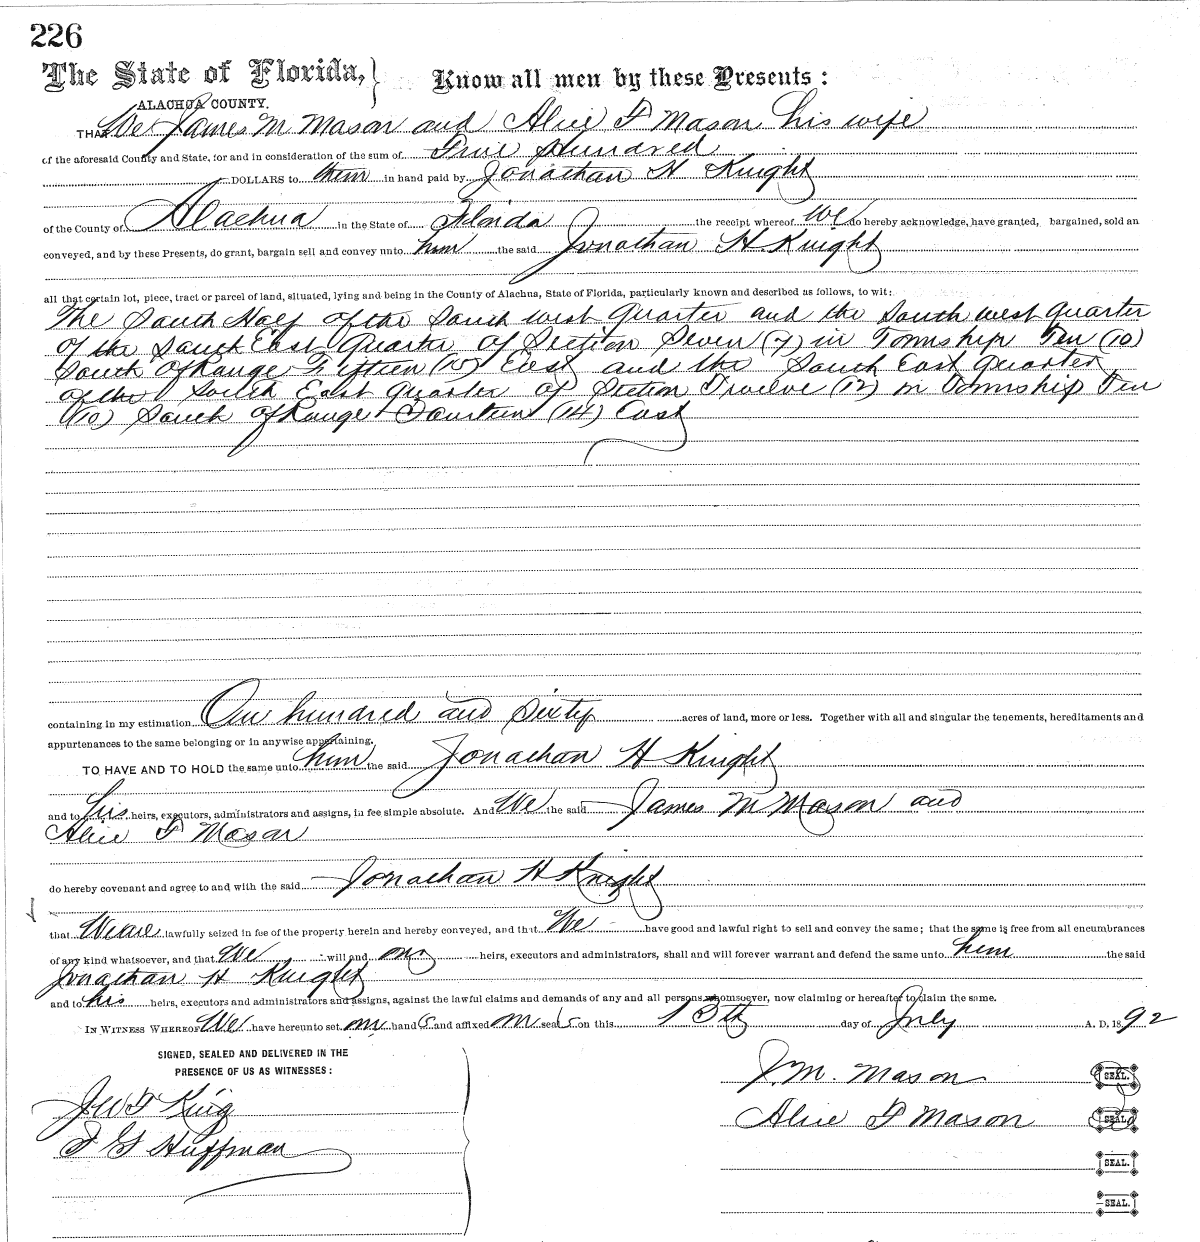 226
The State of Florida, } Know all men by these Presents :
ALACHUA COUNTY.
THAT We James M Mason and Alice F Mason his wife
of the aforesaid County and State, for and in consideration of the sum of Five Hundred
DOLLARS to them in hand paid by Jonathan H Knight
of the County of Alachua in the State of Florida the receipt whereof We do hereby acknowledge, have granted, bargained, sold an
conveyed, and by these Presents, do grant, bargain sell and convey unto him the said Jonathan H Knight
all that certain lot, piece, tract or parcel of land, situated, lying and being in the County of Alachua, State of Florida, particularly known and described as follows, to wit:
The South Half of the South west Quarter and the South west Quarter
of the South East Quarter of Section Seven (7) in Township Ten (10)
South of Range Fifteen (15) East and the South East Quarter
of the South East Quarter of Section Twelve (12) in Township Ten
(10) South of Range Fourteen (14) East
containing in my estimation One hundred and sixty acres of land, more or less. Together with all and singular the tenements, hereditaments and
appurtenances to the same belonging or in anywise appertaining.
TO HAVE AND TO HOLD the same unto him the said Jonathan H Knight
and to his heirs, executors, administrators and assigns, in fee simple absolute. And We the said James M Mason and
Alice F Mason
do hereby covenant and agree to and with the said Jonathan H Knight
that We are lawfully seized in fee of the property herein and hereby conveyed, and that We have good and lawful right to sell and convey the same; that the same is free from all encumbrances
of any kind whatsoever, and that We will and our heirs, executors and administrators, shall and will forever warrant and defend the same unto him the said
Jonathan H Knight
and to his heirs, executors and administrators and assigns, against the lawful claims and demands of any and all persons whomsoever, now claiming or hereafter to claim the same.
IN WITNESS WHEREOF We have hereunto set our hands and affixed our seals on this 13th day of July A. D. 1892
SIGNED, SEALED AND DELIVERED IN THE
PRESENCE OF US AS WITNESSES:
J. M. Mason SEAL.
J W F King
Alice F Mason SEAL.
J G Huffman
SEAL.
SEAL.